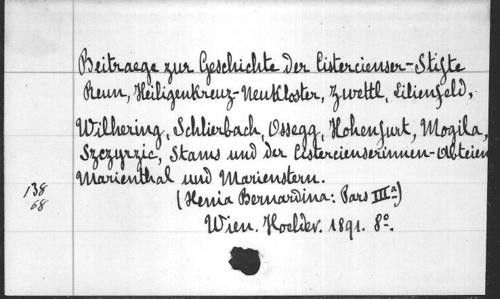 Beitraege zur Geschichte der Cistercienser-Stifte
Reun, Heiligenkreuz-Neukloster, Zwettl, Lilienfeld,
Wilhering, Schlierbach, Ossegg, Hohenfurt, Mogila,
Szczyrzic, Stams und der Cistercienserinnen-Abteien
Marienthal und Marienstern.
138
68
(Xenia Bernardina: Pars IIIa)
Wien. Hoelder. 1891. 8o.